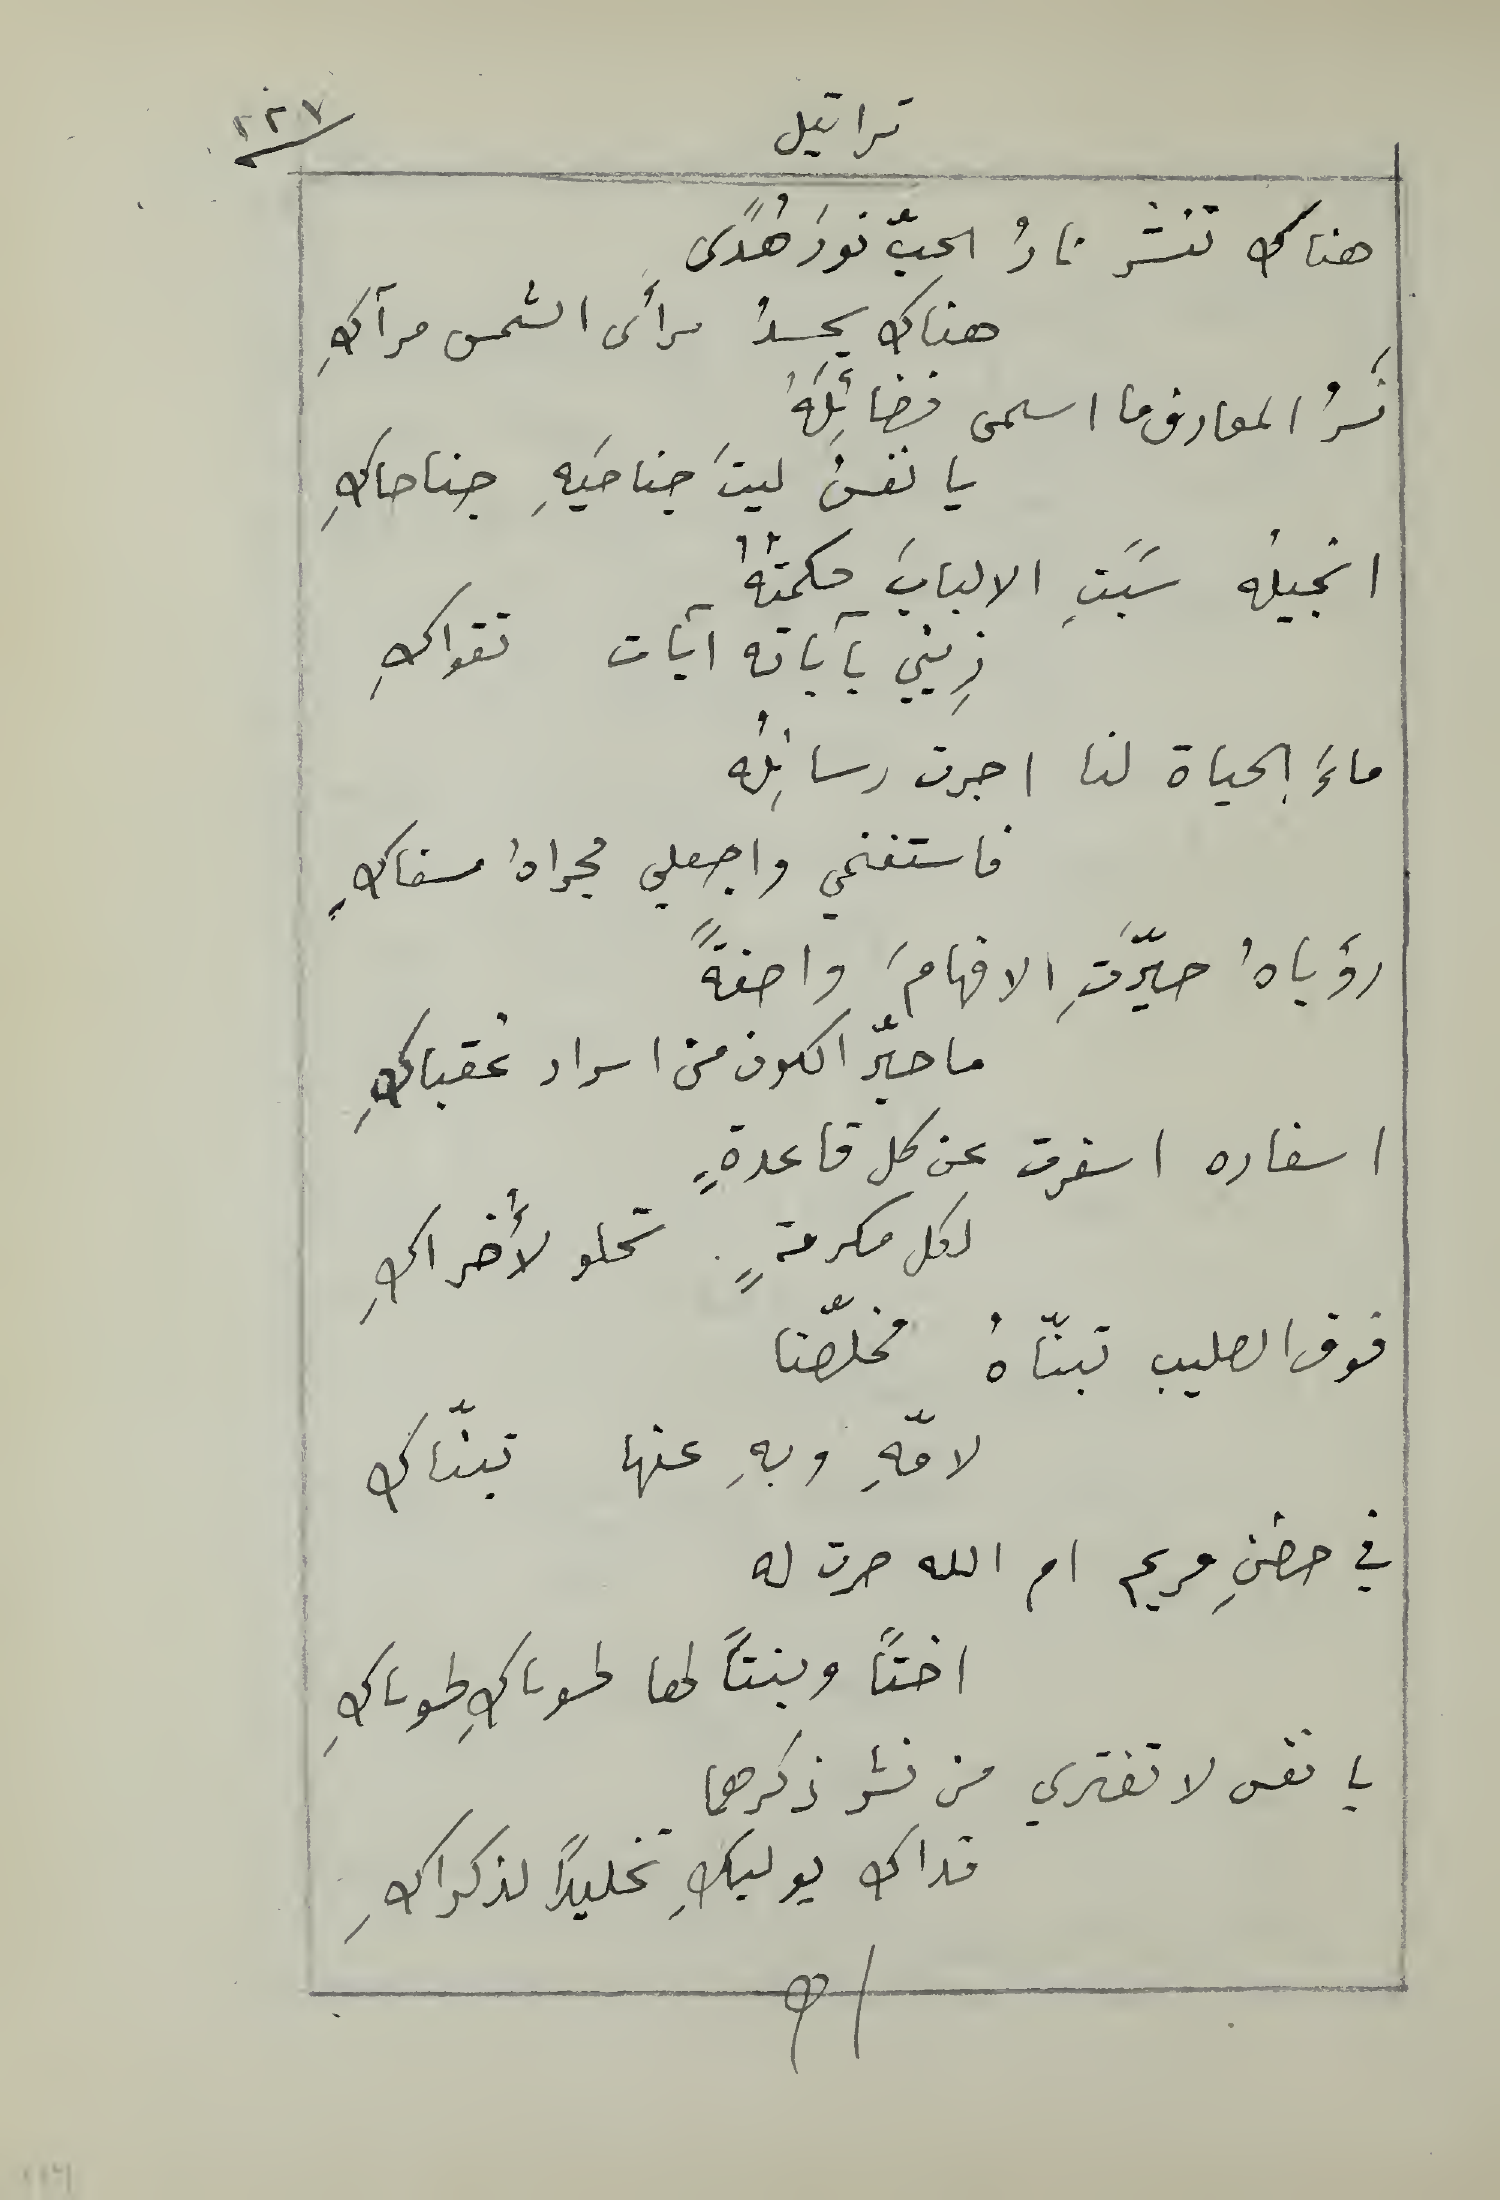 ٢٢٧
تراتيل
هناك تنشر نارُ الحبِّ نورَ هُدًى
هناك يحسدُ مرأى الشمس مرآكِ
نَسرُ المعارف ما اسمى فضائِلَهُ
يا نفسُ ليتَ جناحَيهِ جناحاكِ
انجيلهُ سَبَتِ الالبابَ حكمتُهُ
زِيني بآياته آيات تقواكِ
ماءَ الحياة لنا اجرت رسائِلُهُ
فاستغنمي واجعلي مجراهُ مسقاكِ
رؤياهُ حيَّرَتِ الافهامَ واصفةً
ما حيَّر الكون من اسرار عُقباكِ
اسفاره اسفرت عن كل قاعدةٍ
لكل مكرمةٍ تحلو لأُخراكِ
فوق الصليب تبنّاهُ مخلّصُنا
لامّهِ وبهِ عنها تبنّاك
في حضنِ مريم ام الله صرت له
اختًا وبنتًا لها طوباكِ طوباكِ
يا نفس لا تفتري من نشر ذكرهما
فذاك يوليكِ تخليدًا لذكراكِ